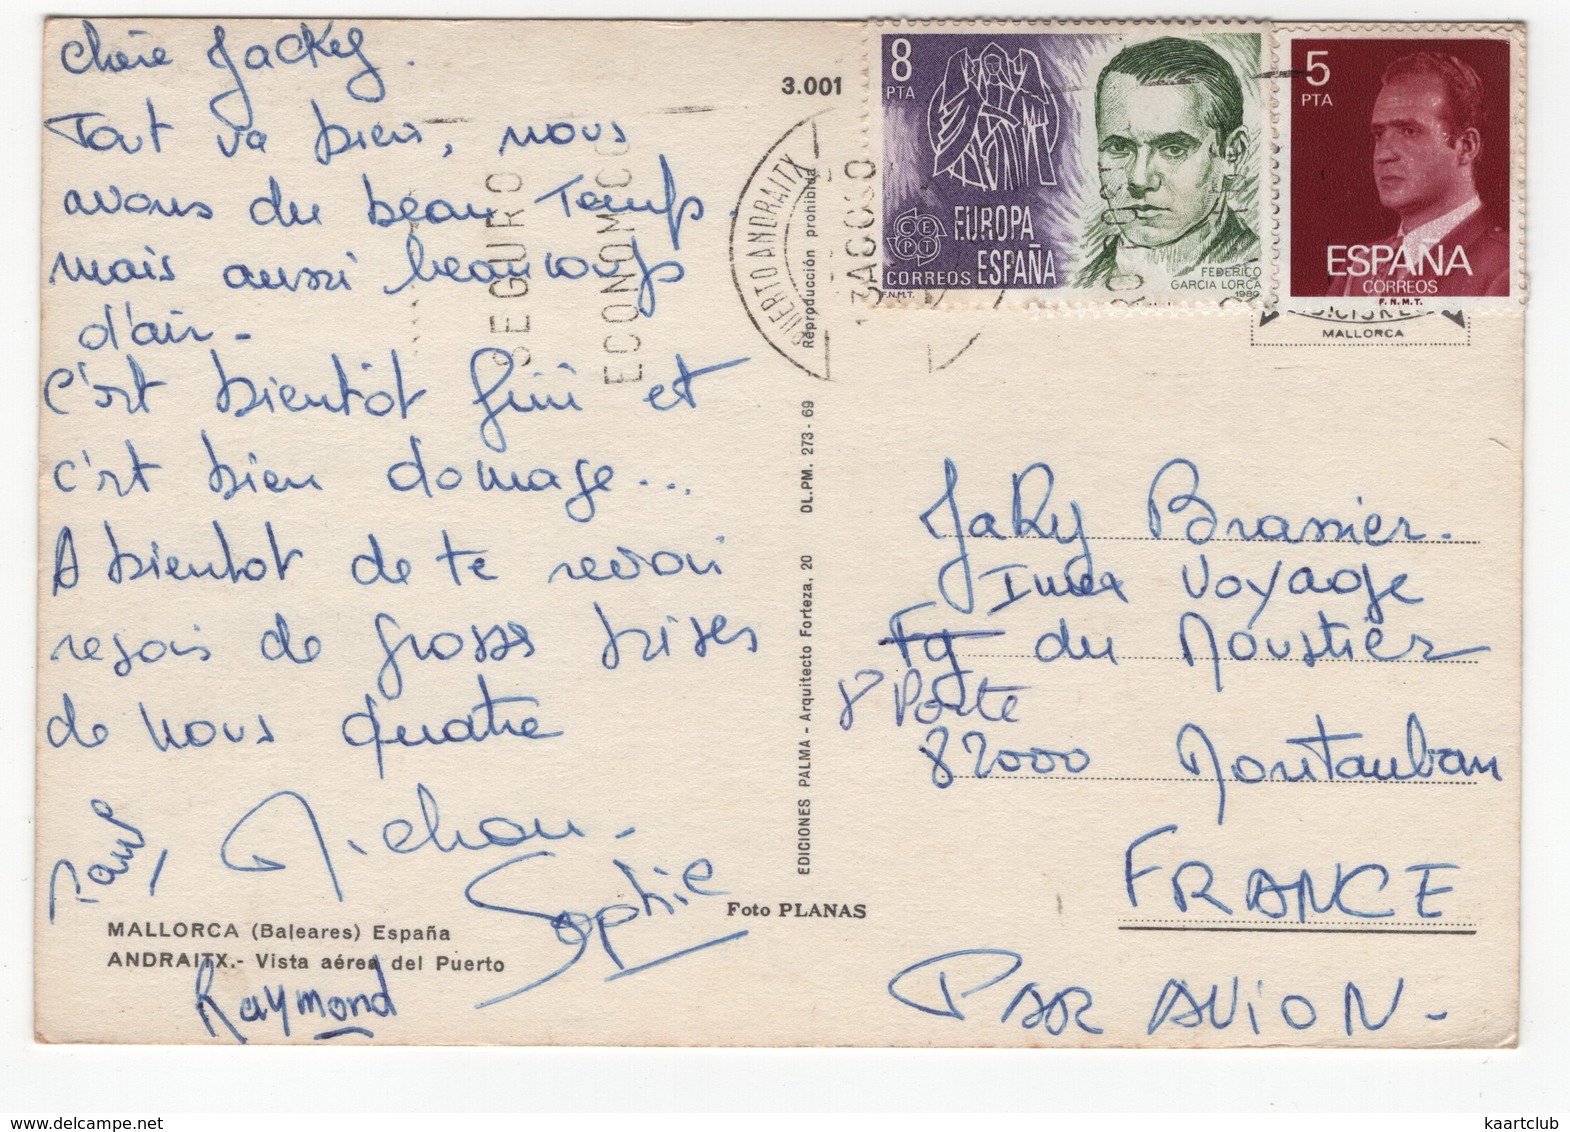 chère Jackey.
Tout va bien, nous
avons du beau Temps.
mais aussi beaucoup
d'air-
C'est bientôt fini et
c'est bien domage...
A bientot de te revoir
resois de grosses bises
de nous quatre
Paul, Michou-
Sophie
Raymond
MALLORCA (Baleares) España
ANDRAITX.- Vista aérea del Puerto
Foto PLANAS
EDICIONES PALMA - Arquitecto Forteza, 20 DL.PM. 273-69
Reproducción prohibida
3.001
PUERTO ANDRAITX
AGO
SEGURO
8
PTA
EUROPA
CEPT
CORREOS ESPAÑA
F.N.M.T.
FEDERICO
GARCIA LORCA
1980
5
PTA
ESPAÑA
CORREOS
F.N.M.T.
MALLORCA
Jaky Brassier.
Voyage
Fg du Moustier
Poste
82000 Montauban
FRANCE
PAR AVION-
kaartclub
delcampe.net